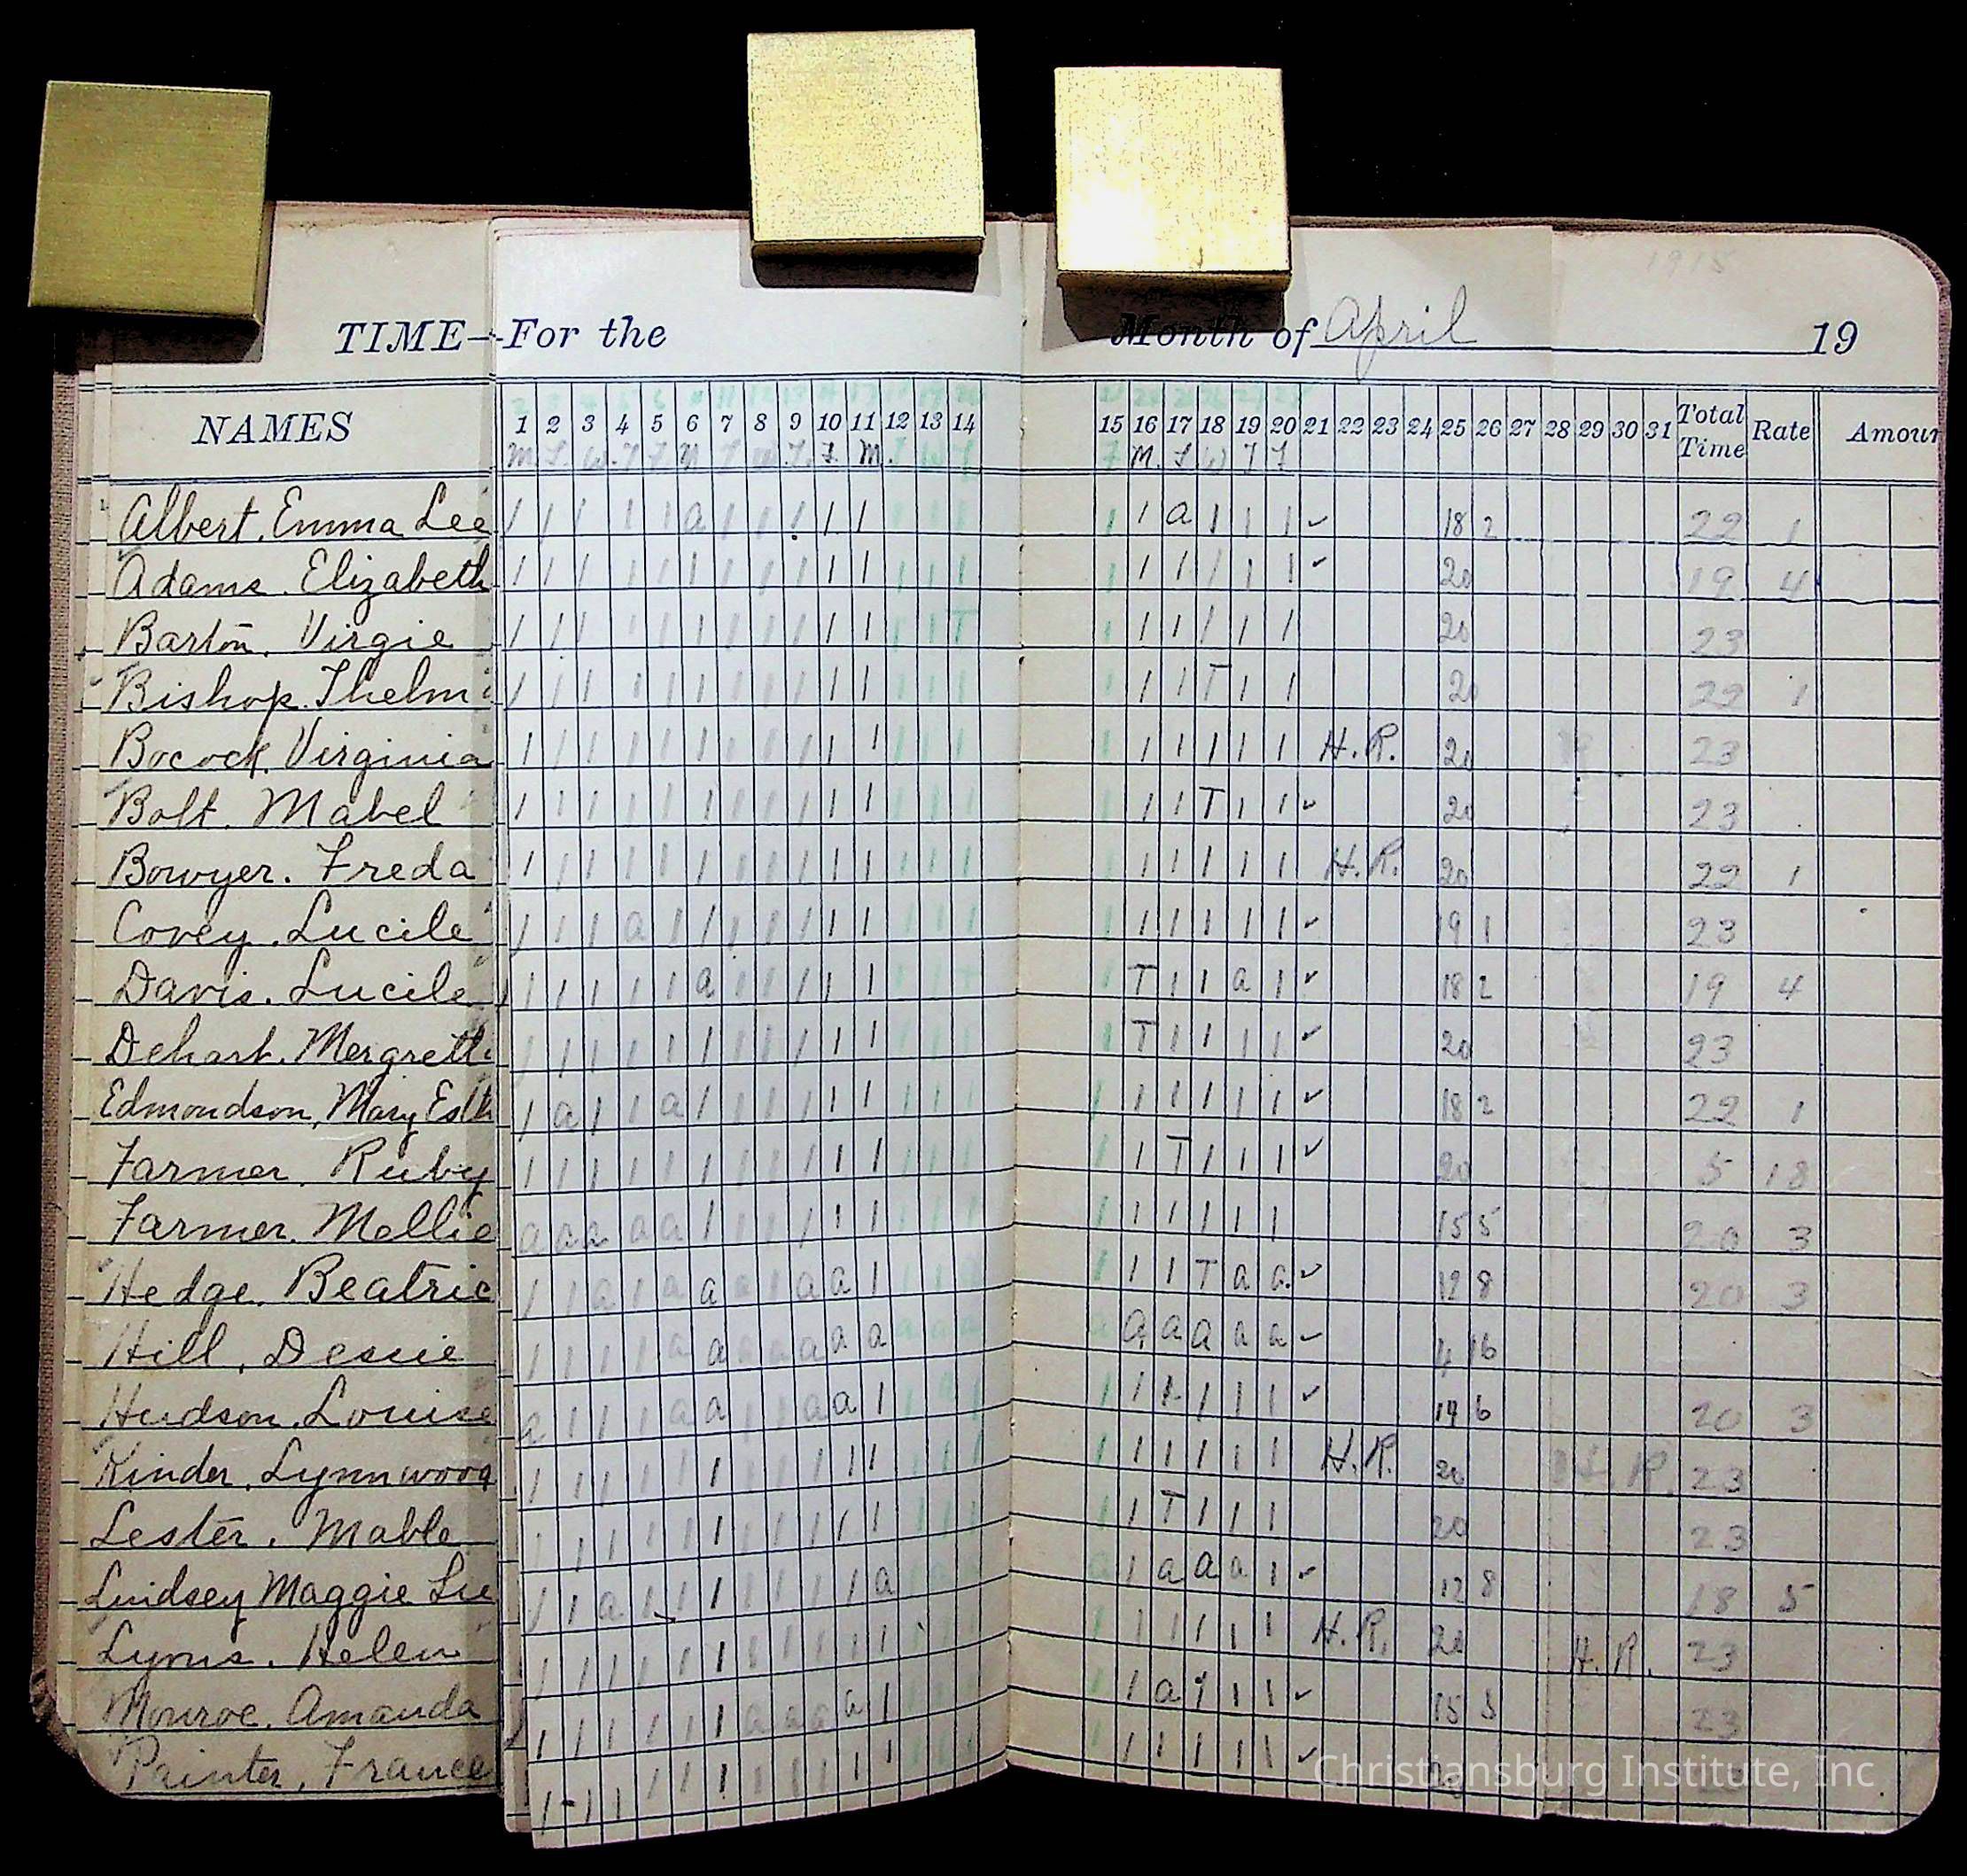 1915
TIME—For the Month of April 19
NAMES 1 2 3 4 5 6 7 8 9 10 11 12 13 14 15 16 17 18 19 20 21 22 23 24 25 26 27 28 29 30 31 Total Time Rate Amoun
M. T. W. T F M T W T. F. M. T W T F M. T W T F
Albert, Emma Lee / / / / / a / / / / / / / / / / a / / / ✓ 18 2 22 1
Adams, Elizabeth / / / / / / / / / / / / / / / / / / / / ✓ 20 19 4
Barton, Virgie / / / / / / / / / / / / / T / / / / / / 20 23
Bishop, Thelm / / / / / / / / / / / / / / / / / T / / 20 22 1
Bocock, Virginia / / / / / / / / / / / / / / / / / / / / H.R. 20 23
Bolt, Mabel / / / / / / / / / / / / / / / / / T / / ✓ 20 23
Bowyer, Freda / / / / / / / / / / / / / / / / / / / / H.R. 20 22 1
Covey, Lucile / / / a / / / / / / / / / / / / / / / / ✓ 19 1 23
Davis, Lucile / / / / / a / / / / / / / / / T / / a / ✓ 18 2 19 4
Dehart, Mergrett / / / / / / / / / / / / / / / T / / / / ✓ 20 23
Edmondson, Mary Esth / a / / a / / / / / / / / / / / / / / / ✓ 18 2 22 1
Farmer, Ruby / / / / / / / / / / / / / / / / T / / / ✓ 20 5 18
Farmer, Mollie a a a a a / / / / / / / / / / / / / / / 15 5 20 3
Hedge, Beatric / / a / a a a / a a / / / / / / / T a a ✓ 12 8 20 3
Hill, Dessie / / / / a a a a a a a a a a a a a a a a ✓ 4 16
Hudson, Louise a / / / a a / / a a / / a / / / / / / / ✓ 14 6 20 3
Kinder, Lynnwood / / / / / / / / / / / / / / / / / / / / H.R. 20 H.R. 23
Lester, Mable / / / / / / / / / / / / / / / / T / / / 20 23
Lindsey Maggie Lu / / a / / / / / / / a / a a a / a a a / ✓ 12 8 18 5
Lyons, Helen / / / / / / / / / / / / / / / / / / / / H.R. 20 H.R. 23
Monroe, Amanda / / / / / / / a a a a / / / / / a / / / ✓ 15 5 23
Painter, France / / / / / / / / / / / / / / / / / / / / ✓
Christiansburg Institute, Inc